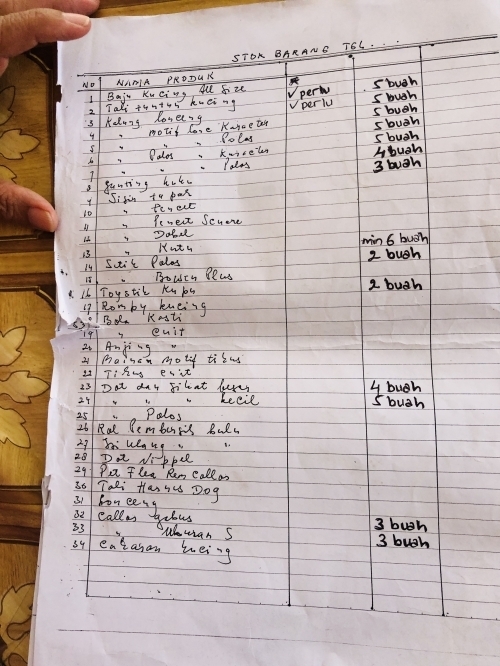 STOK BARANG TGL...
NO NAMA PRODUK *
1 Baju Kucing All Size ✓ perlu 5 buah
2 Tali tuntun kucing ✓ perlu 5 buah
3 Kalung lonceng 5 buah
4 " motif Karakter 5 buah
5 " " " Polos 5 buah
6 " Polos " Karakter 4 buah
7 " " " Polos 3 buah
8 gunting kuku
9 Sisir
10 " Pencet
11 " Pencet Square
12 " Dobel
13 " Kutu min 6 buah
14 Stik Polos 2 buah
15 " Plus
16 Toystik Kupu 2 buah
17 Rompy kucing
Bola Kasti
19 " cuit
20 Anjing "
21 Mainan motif tikus
22 Tikus cuit
23 Dot dan Sikat besar 4 buah
24 " " " kecil 5 buah
25 " Polos
26 Rol Pembersih bulu
27 Isi Ulang " "
28 Dot Nippel
29 Pet Flea Rem Callos
30 Tali Harnes Dog
31 Lonceng
32 Callos gabus
33 " Ukuran S 3 buah
34 Cakaran kucing 3 buah